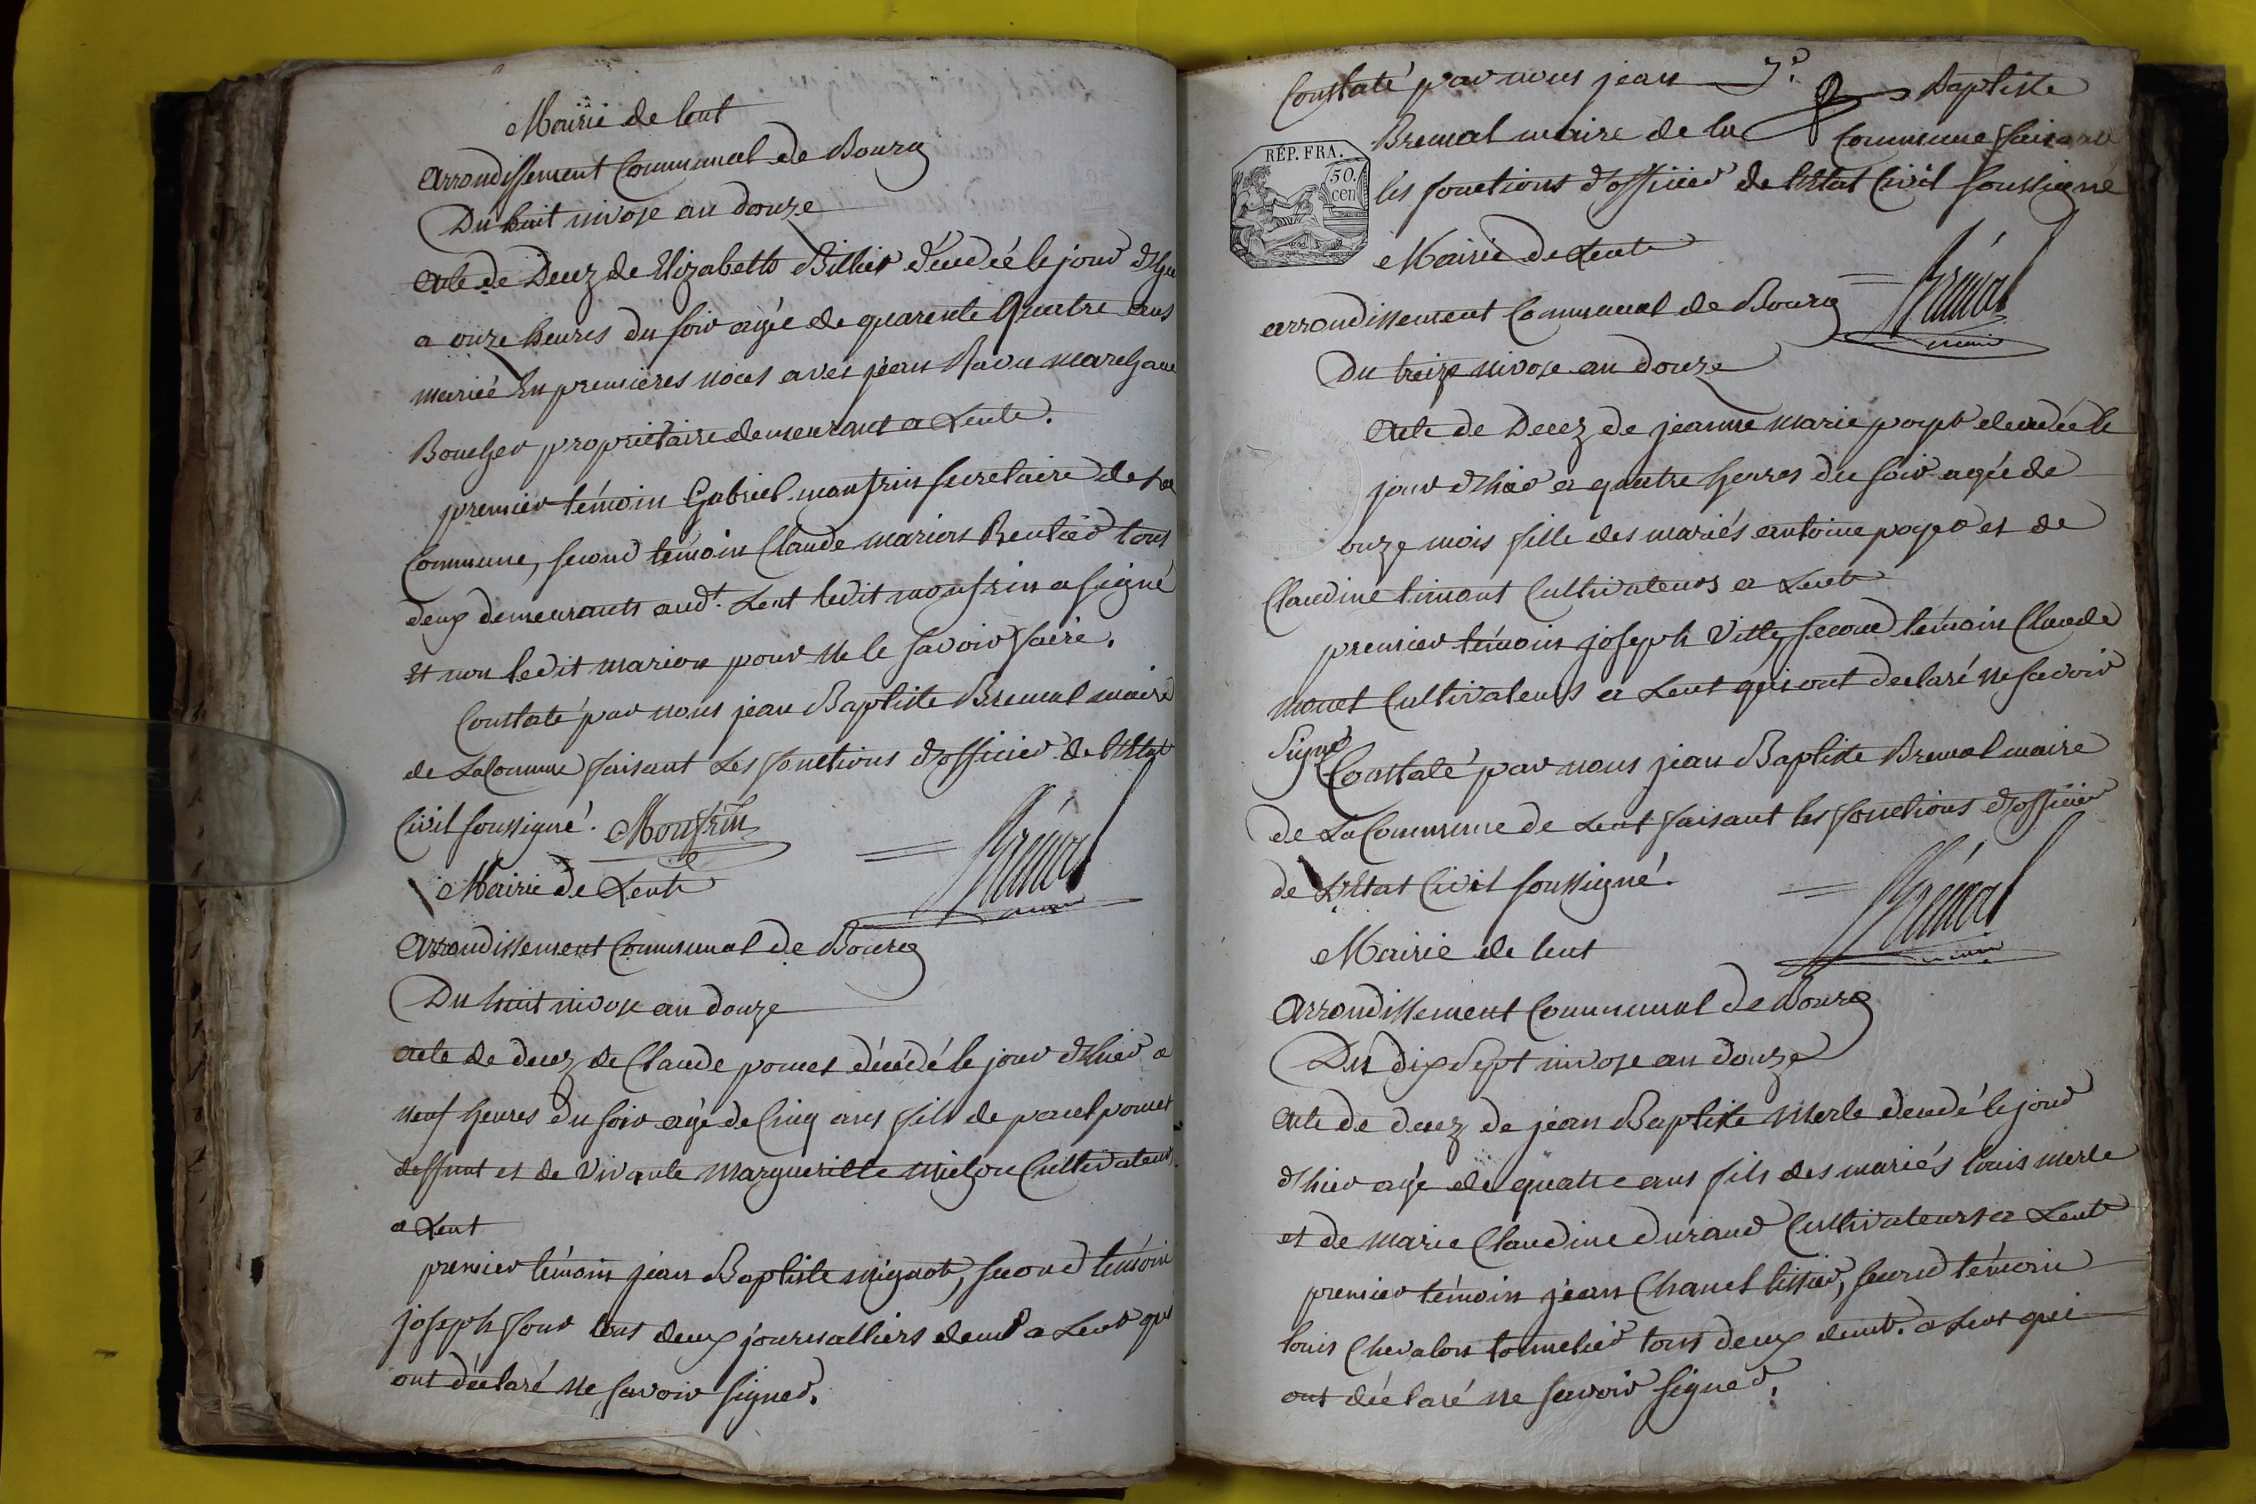 Mairie de lent
Arrondissement Communal de Bourg
Du huit nivose an douze
Acte de Decez de Elizabeth Billier décédée le jour d'hyer
a onze heures du soir agée de quarente Quatre ans
mariée En premieres noces avec jean Ravu marchand
Boucher propriétaire demeurant a Lent.
premier témoin Gabriel monfrin secretaire de La
Commune, second témoin Claude marion Rentier tous
deux demeurants aud.t Lent ledit monfrin a signé
et non ledit marion pour ne le savoir faire.
Constaté par nous jean Baptiste Bremal maire
de La Commune faisant Les fonctions d'officier de l'Etat
Civil soussigné. Monfrin
Brémal
maire
Mairie de Lent
Arrondissement Communal de Bourg
Du huit nivose an douze
acte de decez de Claude pomet décédé le jour d'hier a
neuf heures du soir agé de Cinq ans fils de paul pomet
deffunt et de vivante marguerite Cultivateurs
a Lent
premier témoin jean Baptiste mignot, second témoin
joseph four tous deux journalliers demt a Lent qui
ont déclaré ne savoir signer.
Constaté par nous jean 7.e Baptiste
Bremal maire de la Commune faisant
RÉP. FRA.
50.
cen
les fonctions d'officier de l'Etat Civil soussigné
Mairie de Lent
Brémal
maire
arrondissement Communal de Bourg
Du treize nivose an douze
Acte de Decez de jeanne marie decedée le
jour d'hier a quatre heures du soir agée de
onze mois fille des mariés antoine et de
Claudine timont Cultivateurs a Lent
premier témoin joseph Vitte, second témoin Claude
monet Cultivateurs a Lent qui ont declaré ne savoir
signer Constaté par nous jean Baptiste Bremal maire
de La Commune de Lent faisant les fonctions d'officier
de L'Etat Civil soussigné.
Brémal
maire
Mairie de lent
Arrondissement Communal de Bourg
Du dix Sept nivose an douze
acte de decez de jean Baptiste Merle decedé le jour
d'hier agé de quatre ans fils des mariés louis merle
et de marie Claudine durand Cultivateurs a Lent
premier témoin jean Chanel tissier, second témoin
louis Chevalon tonnelier tous deux demt. a Lent qui
ont déclaré ne savoir signer.